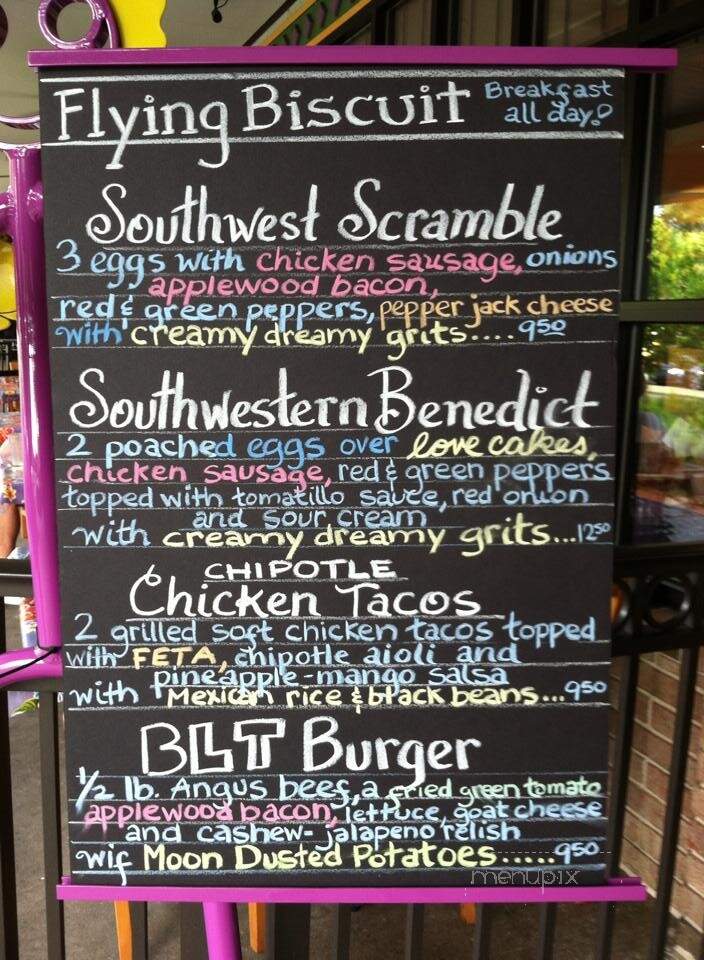 Flying Biscuit Breakfast
all day!
Southwest Scramble
3 eggs with chicken sausage, onions
applewood bacon,
red & green peppers, pepper jack cheese
with creamy dreamy grits.... 9 50
Southwestern Benedict
2 poached eggs over love cakes,
chicken sausage, red & green peppers
topped with tomatillo sauce, red onion
and sour cream
with creamy dreamy grits...12 50
CHIPOTLE
Chicken Tacos
2 grilled soft chicken tacos topped
with FETA, chipotle aioli and
pineapple-mango salsa
with Mexican rice & black beans...9 50
BLT Burger
1/2 lb. Angus beef, a fried green tomato
applewood bacon, lettuce, goat cheese
and cashew-jalapeno relish
wif Moon Dusted Potatoes.....9 50
menupix